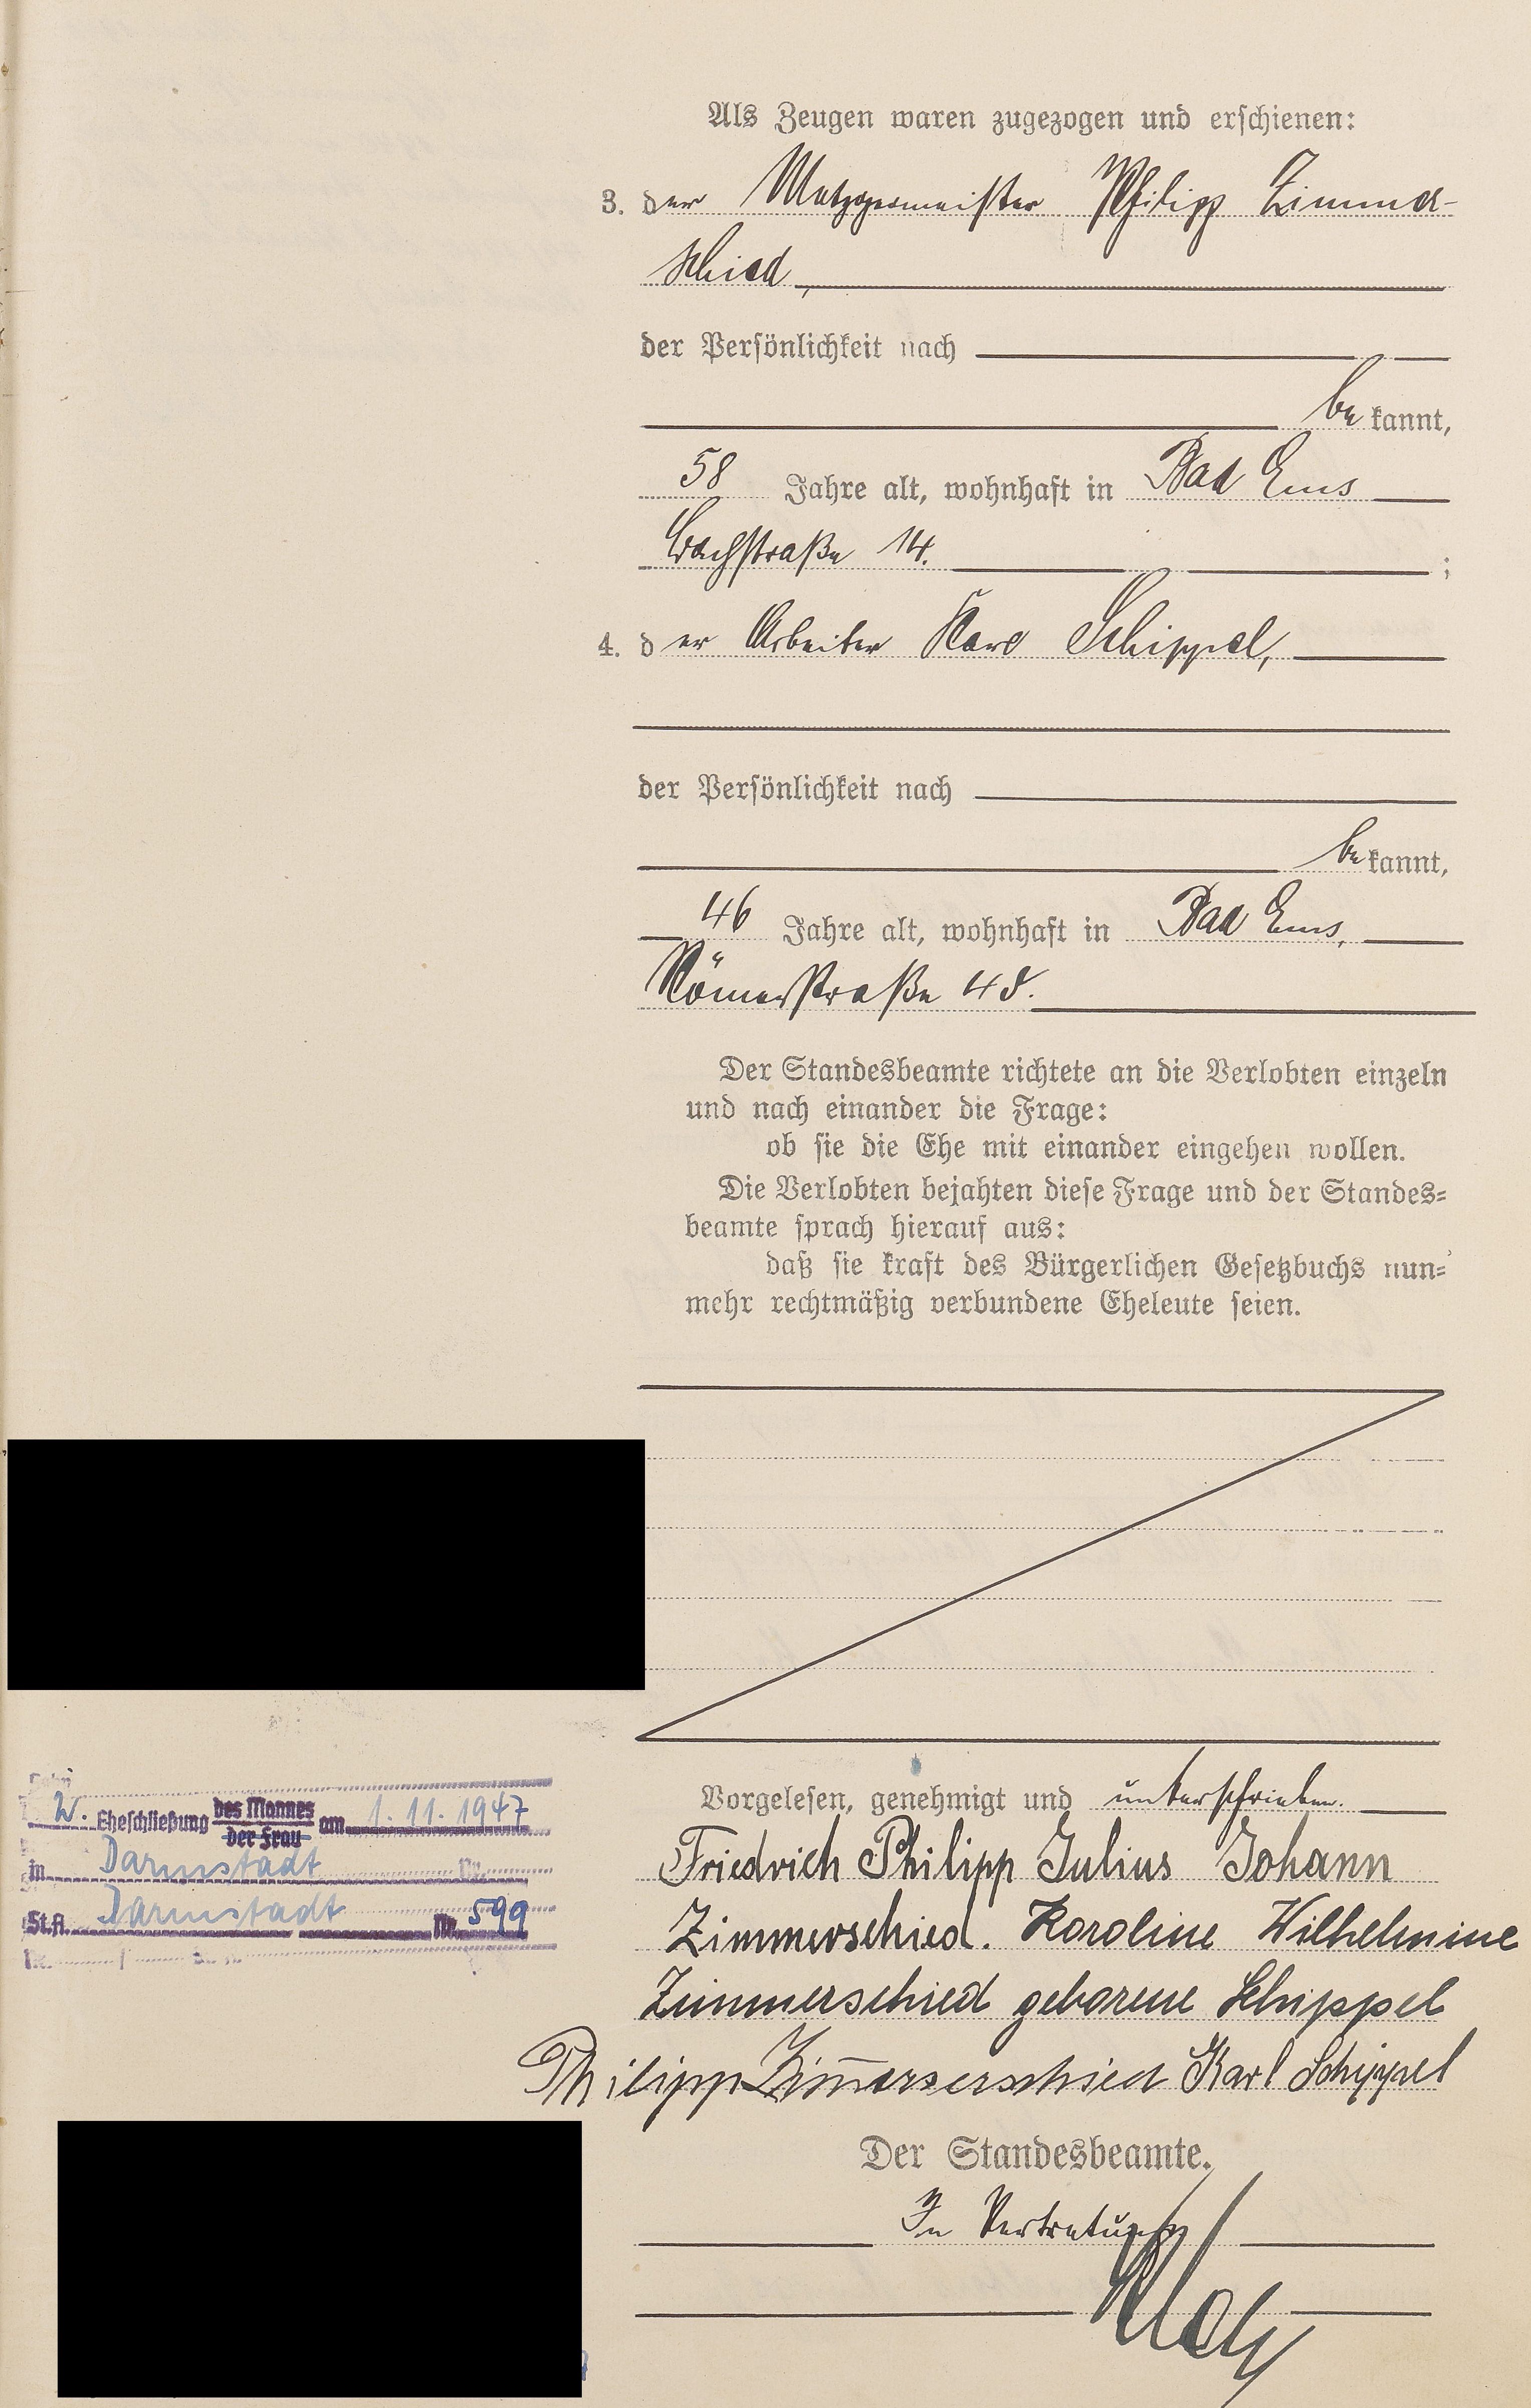 Als Zeugen waren zugezogen und erschienen:
3. der Metzgermeister Philipp Zimmer-
schied,
der Persönlichkeit nach
be kannt,
58 Jahre alt, wohnhaft in Bad Ems
Bachstraße 14. ;
4. der Arbeiter Karl Schippel,
der Persönlichkeit nach
be kannt,
46 Jahre alt, wohnhaft in Bad Ems,
Römerstraße 48.
Der Standesbeamte richtete an die Verlobten einzeln
und nach einander die Frage:
ob sie die Ehe mit einander eingehen wollen.
Die Verlobten bejahten diese Frage und der Standes-
beamte sprach hierauf aus:
daß sie kraft des Bürgerlichen Gesetzbuchs nun-
mehr rechtmäßig verbundene Eheleute seien.
W. Eheschließung des Mannes am 1.11.1947
der Frau
in Darmstadt
St.A. Darmstadt Nr. 599
Vorgelesen, genehmigt und unterschrieben.
Friedrich Philipp Julius Johann
Zimmerschied. Karoline Wilhelmine
Zimmerschied geborene Schippel
Philipp Zimmerschied Karl Schippel
Der Standesbeamte.
In Vertretung